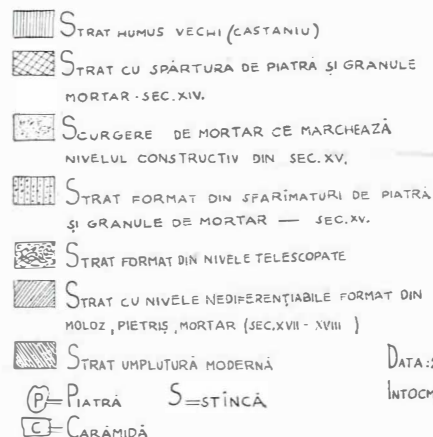 STRAT HUMUS VECHI (CASTANIU)
STRAT CU SPĂRTURĂ DE PIATRĂ ȘI GRANULE
MORTAR - SEC. XIV.
SCURGERE DE MORTAR CE MARCHEAZĂ
NIVELUL CONSTRUCTIV DIN SEC. XV.
STRAT FORMAT DIN SFARÎMATURI DE PIATRĂ
ȘI GRANULE DE MORTAR — SEC. XV.
STRAT FORMAT DIN NIVELE TELESCOPATE
STRAT CU NIVELE NEDIFERENȚIABILE FORMAT DIN
MOLOZ, PIETRIȘ, MORTAR (SEC. XVII - XVIII)
STRAT UMPLUTURĂ MODERNĂ
P = PIATRĂ S = STÎNCĂ
C = CARĂMIDĂ
DATA:
INTOCM